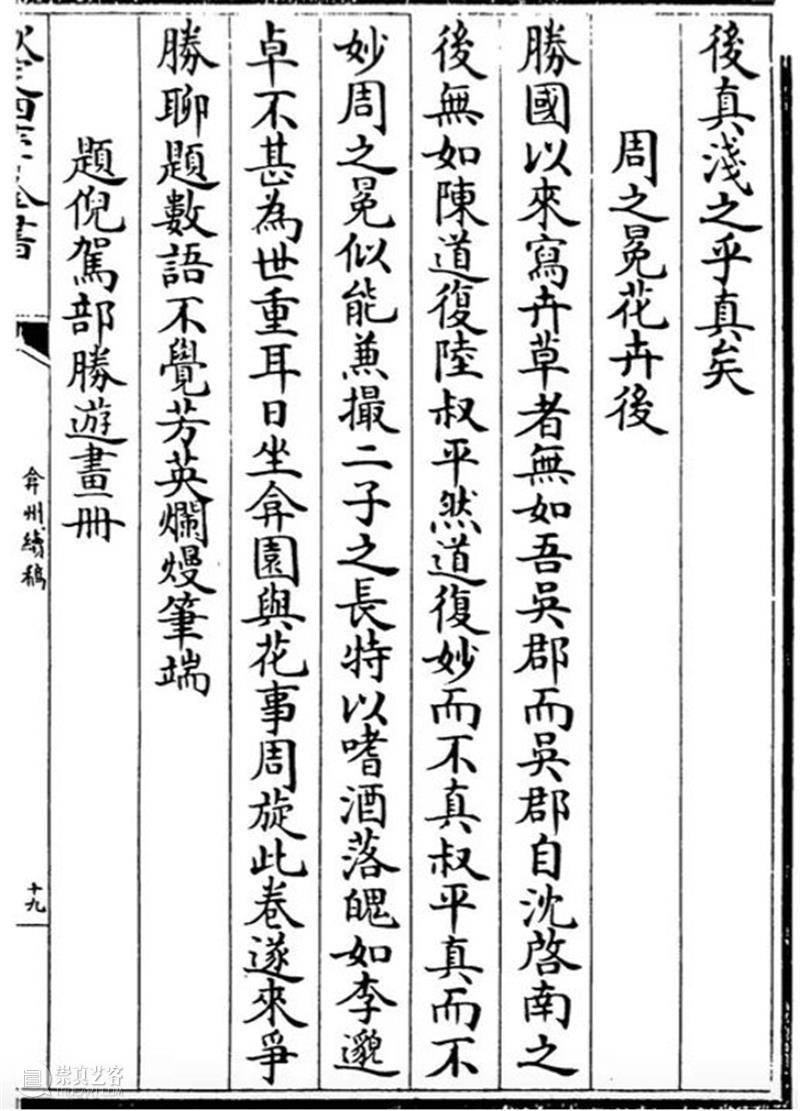 後真淺之乎真矣
周之冕花卉後
勝國以來寫卉草者無如吾吳郡而吳郡自沈啓南之
後無如陳道復陸叔平然道復妙而不真叔平真而不
妙周之冕似能兼撮二子之長特以嗜酒落魄如李邈
卓不甚為世重耳日坐弇園與花事周旋此卷遂來爭
勝聊題數語不覺芳英爛熳筆端
題倪駕部勝遊畫冊
弇州續稿
十九
崇真艺客